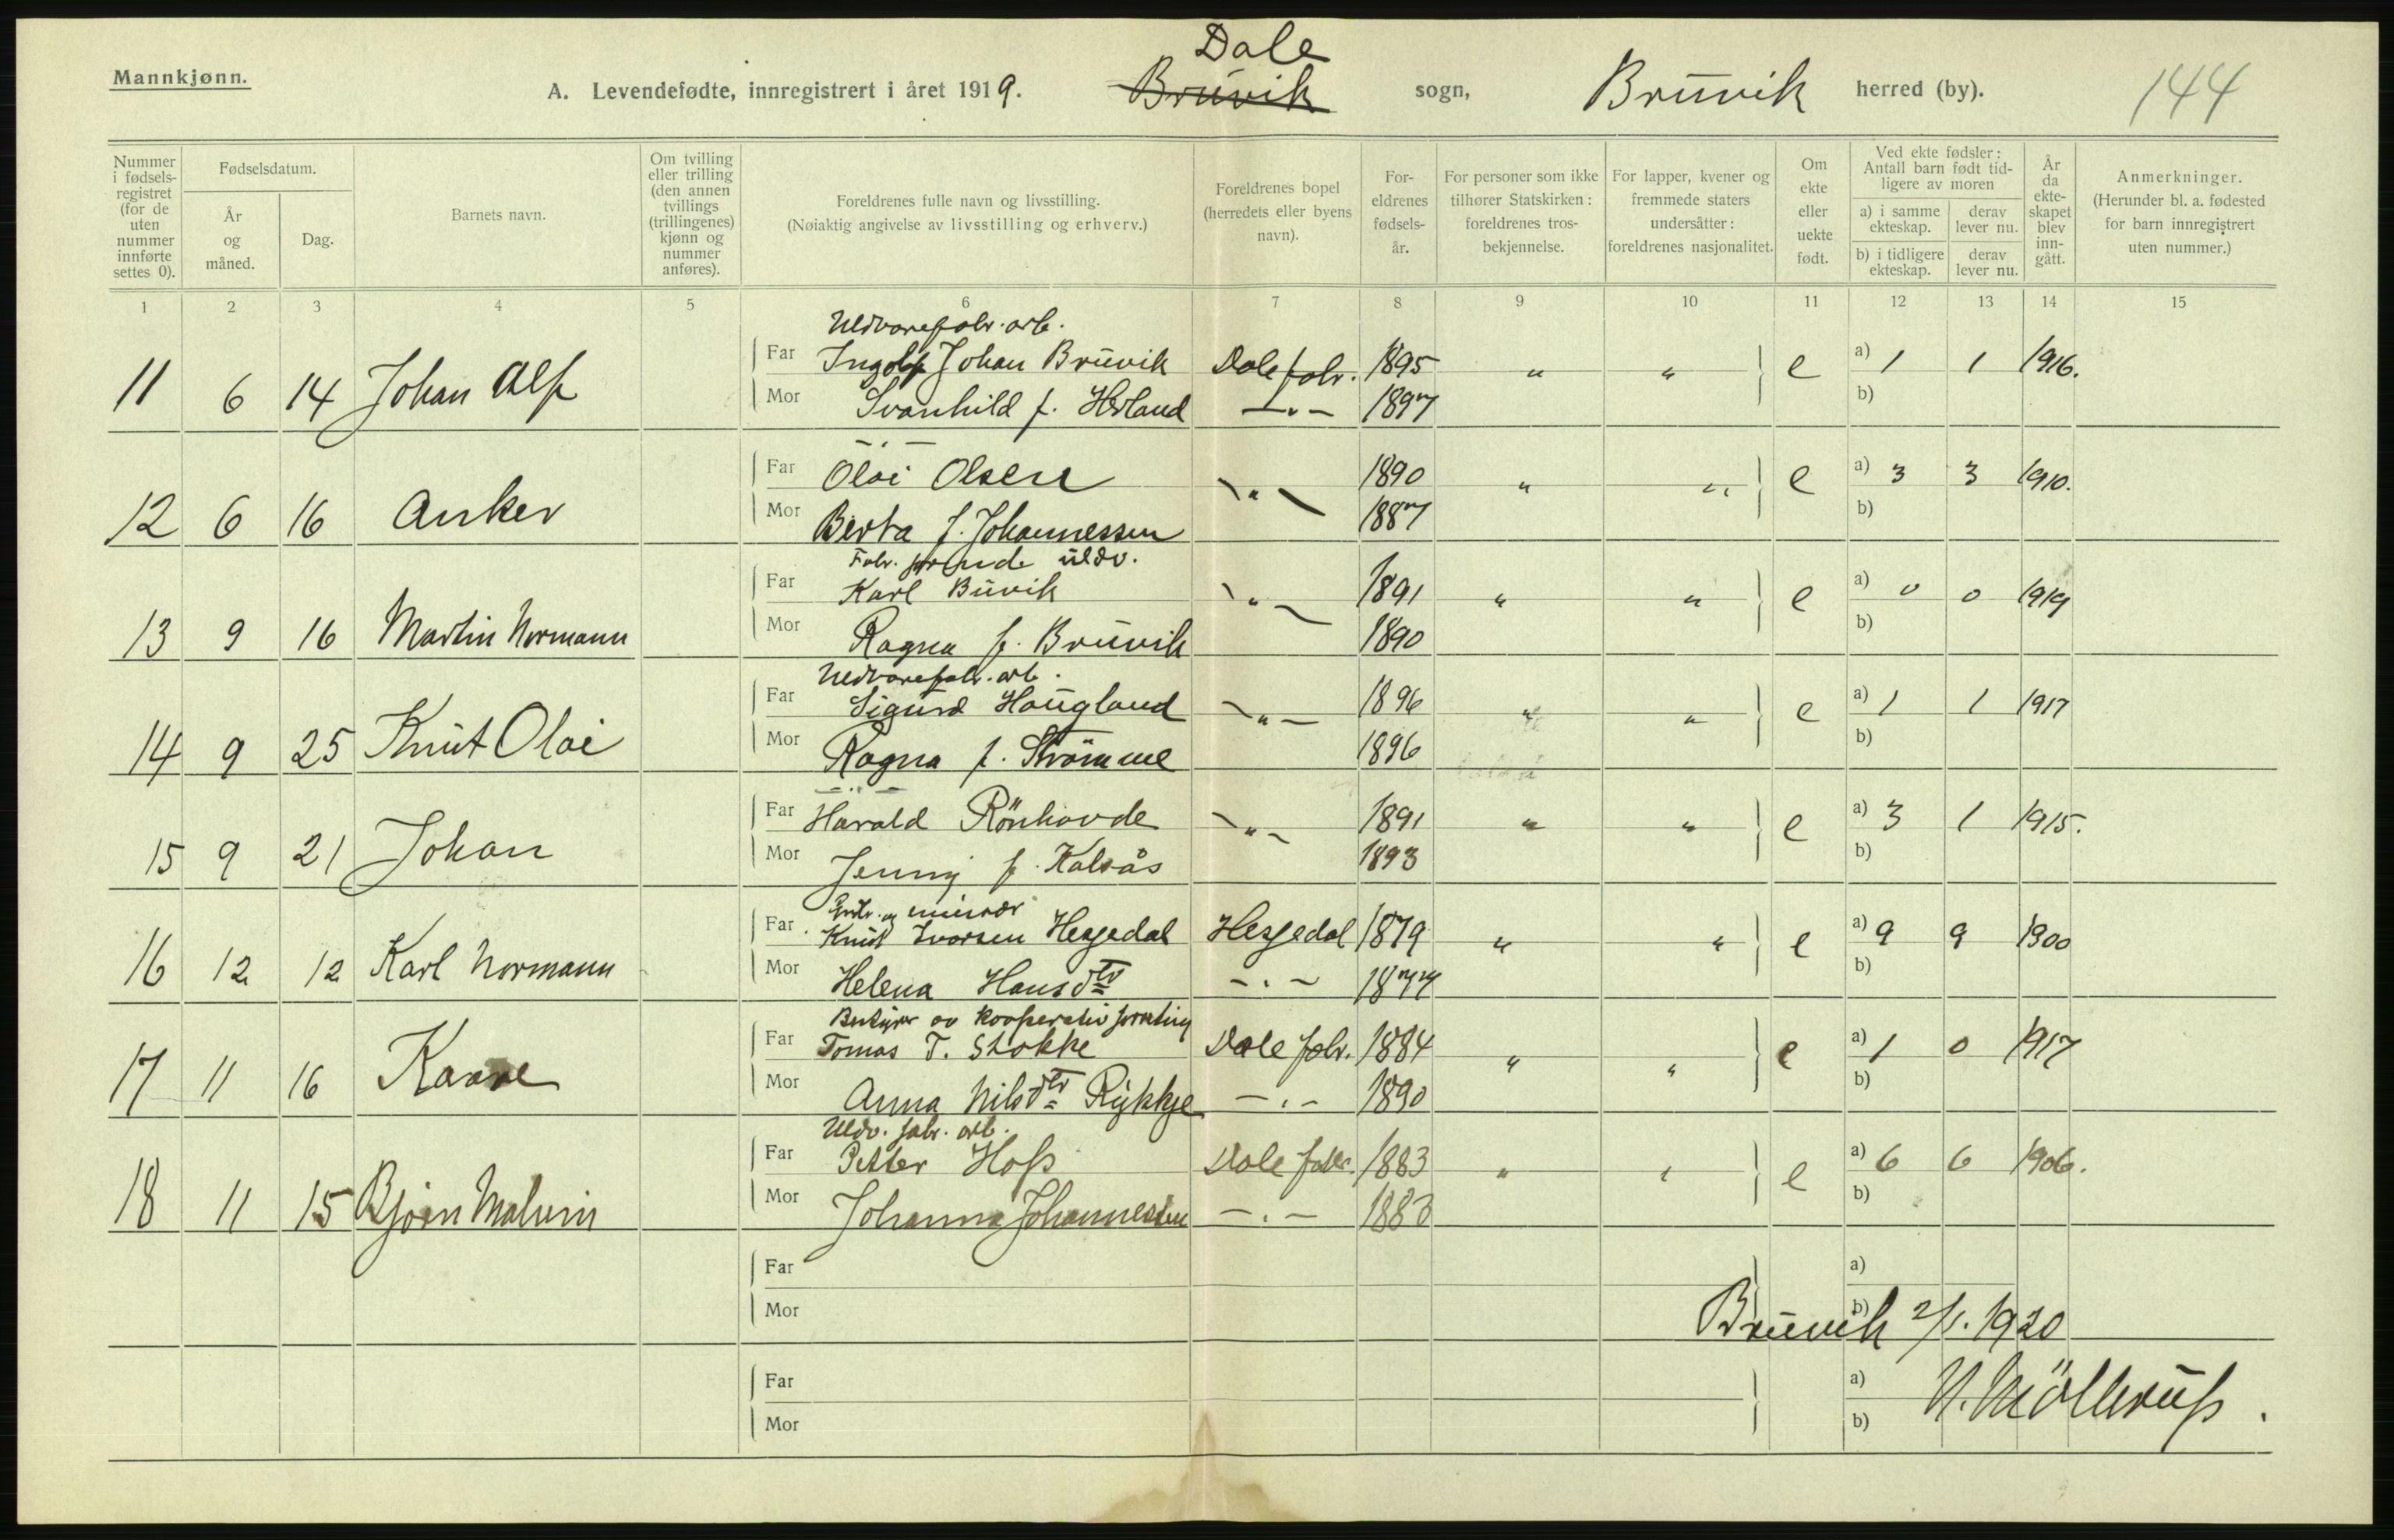 Mannkjønn.
A. Levendefødte, innregistrert i året 1919.
Dale
Bruvik
sogn,
Bruvik
herred (by).
144
Nummer i fødsels-registret (for de uten nummer innførte settes 0).
Fødselsdatum.
År og måned.
Dag.
Barnets navn.
Om tvilling eller trilling (den annen tvillings (trillingenes) kjønn og nummer anføres).
Foreldrenes fulle navn og livsstilling.
(Nøiaktig angivelse av livsstilling og erhverv.)
Foreldrenes bopel (herredets eller byens navn).
For-eldrenes fødsels-år.
For personer som ikke tilhører Statskirken: foreldrenes tros-bekjennelse.
For lapper, kvener og fremmede staters undersåtter: foreldrenes nasjonalitet.
Om ekte eller uekte født.
Ved ekte fødsler: Antall barn født tid-ligere av moren
a) i samme ekteskap.
derav lever nu.
b) i tidligere ekteskap.
derav lever nu.
År da ekte-skapet blev inn-gått.
Anmerkninger.
(Herunder bl. a. fødested for barn innregistrert uten nummer.)
1 2 3 4 5 6 7 8 9 10 11 12 13 14 15
Uldvarefabr. arb.
Far Ingolf Johan Bruvik Dale fabr. 1895 " " e a) 1 1 1916.
11 6 14 Johan Alf
Mor Svanhild f. Herland —"— 1897 b)
—"—
Far Olai Olsen —"— 1890 " " e a) 3 3 1910.
12 6 16 Anker
Mor Berta f. Johannessen 1887 b)
Fabr. uldv.
Far Karl Buvik —"— 1891 " " e a) 0 0 1919
13 9 16 Martin Normann
Mor Ragna f. Bruvik 1890 b)
Uldvarefabr. arb.
Far Sigurd Hougland —"— 1896 " " e a) 1 1 1917
14 9 25 Knut Olai
Mor Ragna f. Strömme 1896 b)
—"—
Far Harald Rönhovde —"— 1891 " " e a) 3 1 1915.
15 9 21 Johan
Mor Jenny f. Kalsås 1893 b)
og
Far Knut Ivarsen Hesjedal Hesjedal 1879 " " e a) 9 9 1900
16 12 12 Karl Normann
Mor Helena Hansdtr —"— 1877 b)
Bestyrer av kooperativ forretning
Far Tomas T. Stokke Dale fabr. 1884 " " e a) 1 0 1917
17 11 16 Kaare
Mor Anna Nilsdtr Rykkje —"— 1890 b)
Uldv. fabr. arb.
Far Petter Hoff Dale fabr. 1883 " " e a) 6 6 1906.
18 11 15 Bjorn Malvin
Mor Johanna Johannessen —"— 1883 b)
Far a)
Mor b)
Bruvik 2/1. 1920
Far a)
Mor b)